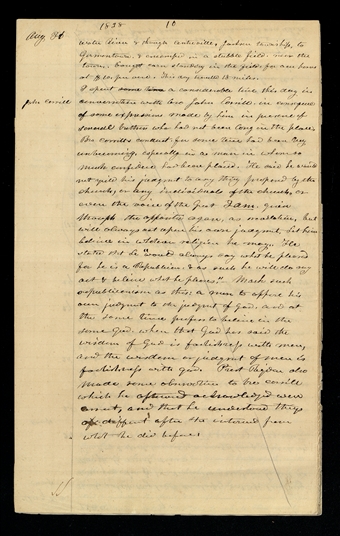 1838 10
Aug. 31
water Union & through Centreville, Jackson township, to
Germantown, & encamped in a stubble field near the
town. Bought corn standing in the field for our horses
at $10 per acre. This day travelled 18 miles.
I spent some time a considerable time this day in
John Corrill
conversation with bro John Corrill, in consequence
of some expressions made by him in presence of
several brethren who had not been long in the place.
Bro Corrill's conduct for some time had been very
unbecoming, especially in a man in whom so
much confidence had been placed. He said he would
not yield his judgment to any thing proposed by the
church, or any individuals of the church, or
even the voice of the Great I am, given
through the appointed organ, as revelation, but
will always act upon his own judgment, let him
believe in whatever religion he may. He
stated that he "would always say what he pleased
for he is a Republican & as such he will do, say
act & believe what he pleases". Mark such
republicanism as this; a man to oppose his
own judgment to the judgment of God, and at
the same time profess to believe in the
same God. when that God has said the
wisdom of God is foolishness with men,
and the wisdom or judgment of men is
foolishness with God. Prest Rigdon also
made some observation to bro Corrill
which he afterward acknowledged were
correct, and that he understood things
different after the interview from
what he did before